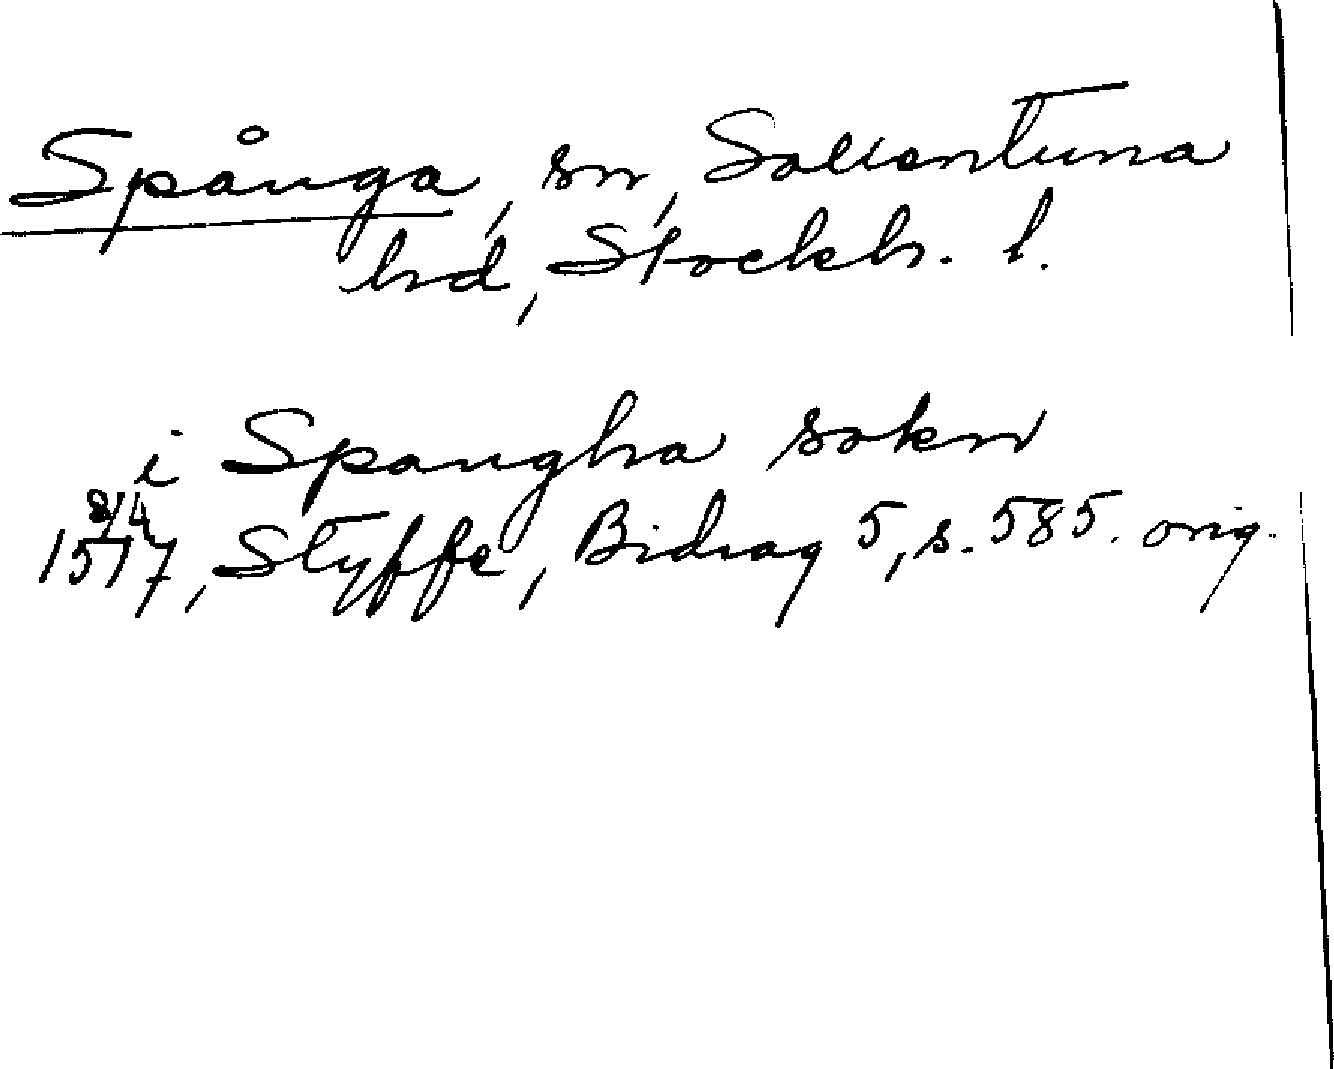 Spånga, sn, Sollentuna
hd, Stockh. l.
i Spangha sokn
8/4
1517, Styffe, Bidrag 5, s. 585. orig.